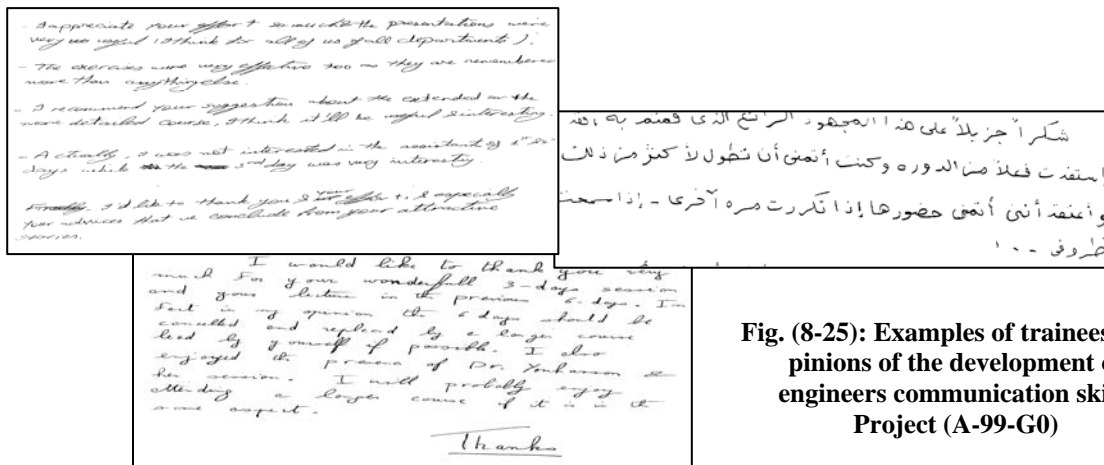 - I appreciate your effort so much & the presentations were
very us useful (I think for all of us of all departments).
- The exercises were very effective too as they are remembered
more than anything else.
- I recommend your suggestion about the extended or the
more detailed course, I think it'll be useful & interesting.
- Actually, I was not interested in the assistant of 1st 2
days while the 3rd day was very interesting
Finally, I'd like to thank you & your effort, & especially
your advices that we conclude from your attractive
stories.
شكراً جزيلاً على هذا المجهود الرائع الذى قمتم به ،لقد
إستفدت فعلاً من الدوره وكنت أتمنى أن تطول لأكثر من ذلك
وأعتقد أننى أتمنى حضورها إذا تكررت مره آخرى - إذا سمحت
ظروفى ...
I would like to thank you very
much for your wonderfull 3-days session
and your lecture in the previous 6-days. In
fact in my opinion the 6 days should be
cancelled and replaced by a longer course
lead by yourself if possible. I also
enjoyed the of Dr. &
her session. I will probably enjoy
attending a longer course if it is in the
same aspect.
Thanks
Fig. (8-25): Examples of trainees
pinions of the development o
engineers communication ski
Project (A-99-G0)